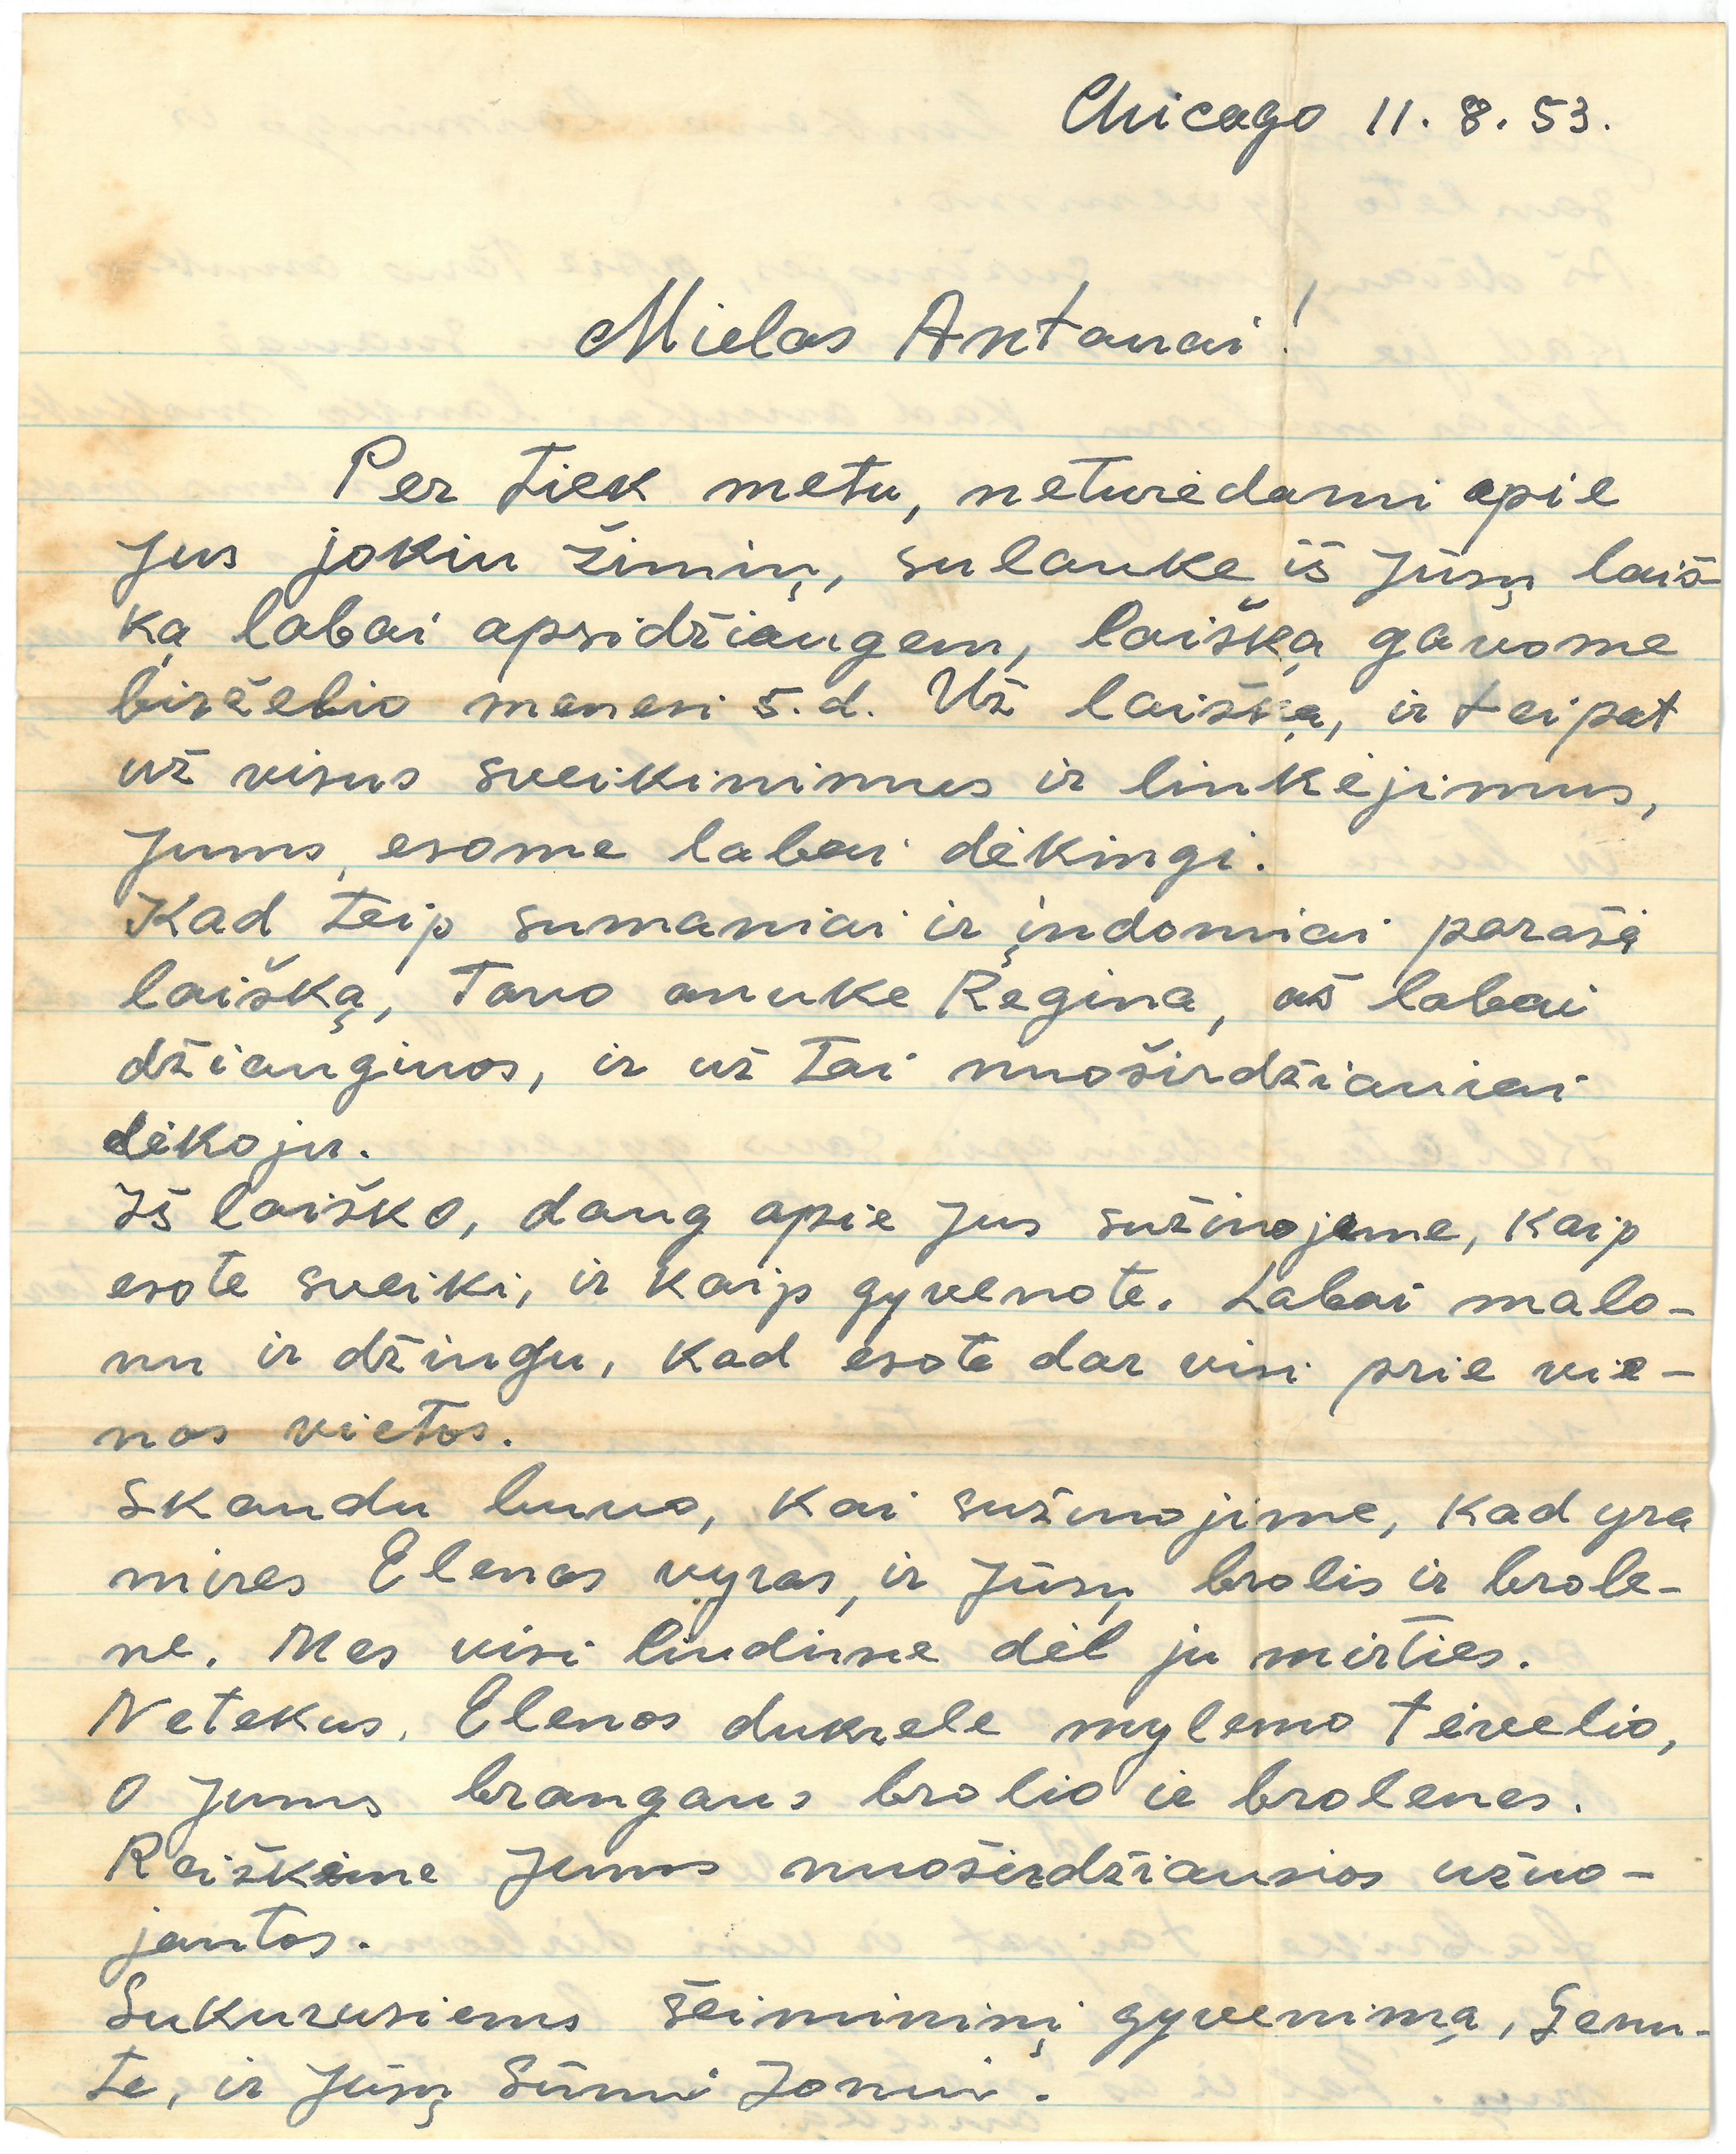 Chicago 11. 8. 53.
Mielas Antanai!
Per tiek metu, neturėdami apie
Jus jokiu žinių, sulauke iš Jūsų laiš-
ką labai apsidžiaugem, laišką gavome
birželio menesi 5. d. Už laišką, ir teipat
už visus sveikinimus ir linkėjimus,
Jums, esome labai dėkingi.
Kad teip sumaniai ir įndomiai parašė
laišką, Tavo anuke Regina, aš labai
džiauginos, ir už tai nuoširdžiauiai
dėkoju.
Iš laiško, daug apie Jus sužinojeme, kaip
esate sveiki, ir kaip gyvenate. Labai malo-
nu ir džiugu, kad esate dar visi prie vie-
nos vietos.
Skaudu buvo, kai sužinojime, kad yra
mires Elenos vyras, ir Jūsų brolis ir brole-
ne. Mes visi liudime dėl ju mirties.
Netekus, Elenos dukrele mylemo tėvelio,
o Jums brangaus brolio ir brolenes.
Reiškeime Jums nuoširdžiausios užuo-
jautos.
Sukurusiems šeimininį gyvenimą, Genu-
te, ir Jūsų Sūnui Jonui.